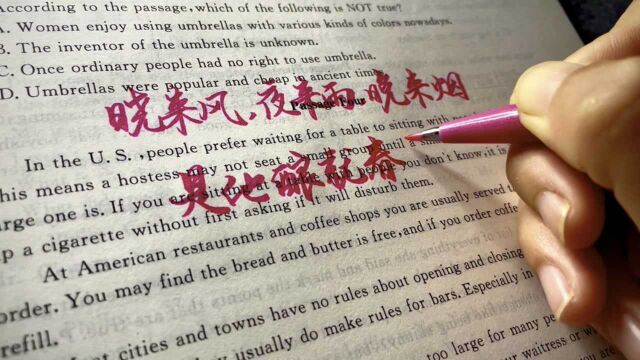 According to the passage, which of the following is NOT true?
A. Women enjoy using umbrellas with various kinds of colors nowadays.
B. The inventor of the umbrella is unknown.
C. Once ordinary people had no right to use umbrella.
D. Umbrellas were popular and cheap in ancient time
晓来风,夜来雨,晚来烟
Passage Four
In the U. S. , people prefer waiting for a table to sitting with
是他酿就春
his means a hostess may not seat a small group until a small
arge one is. If you are sitting at a table with people you don't know, it is
p a cigarette without first asking if it will disturb them.
At American restaurants and coffee shops you are usually served
order. You may find the bread and butter is free, and if you order coffee
refill.
cities and towns have no rules about opening and closing
usually do make rules for bars. Especially in
too large for many pe
waitress or